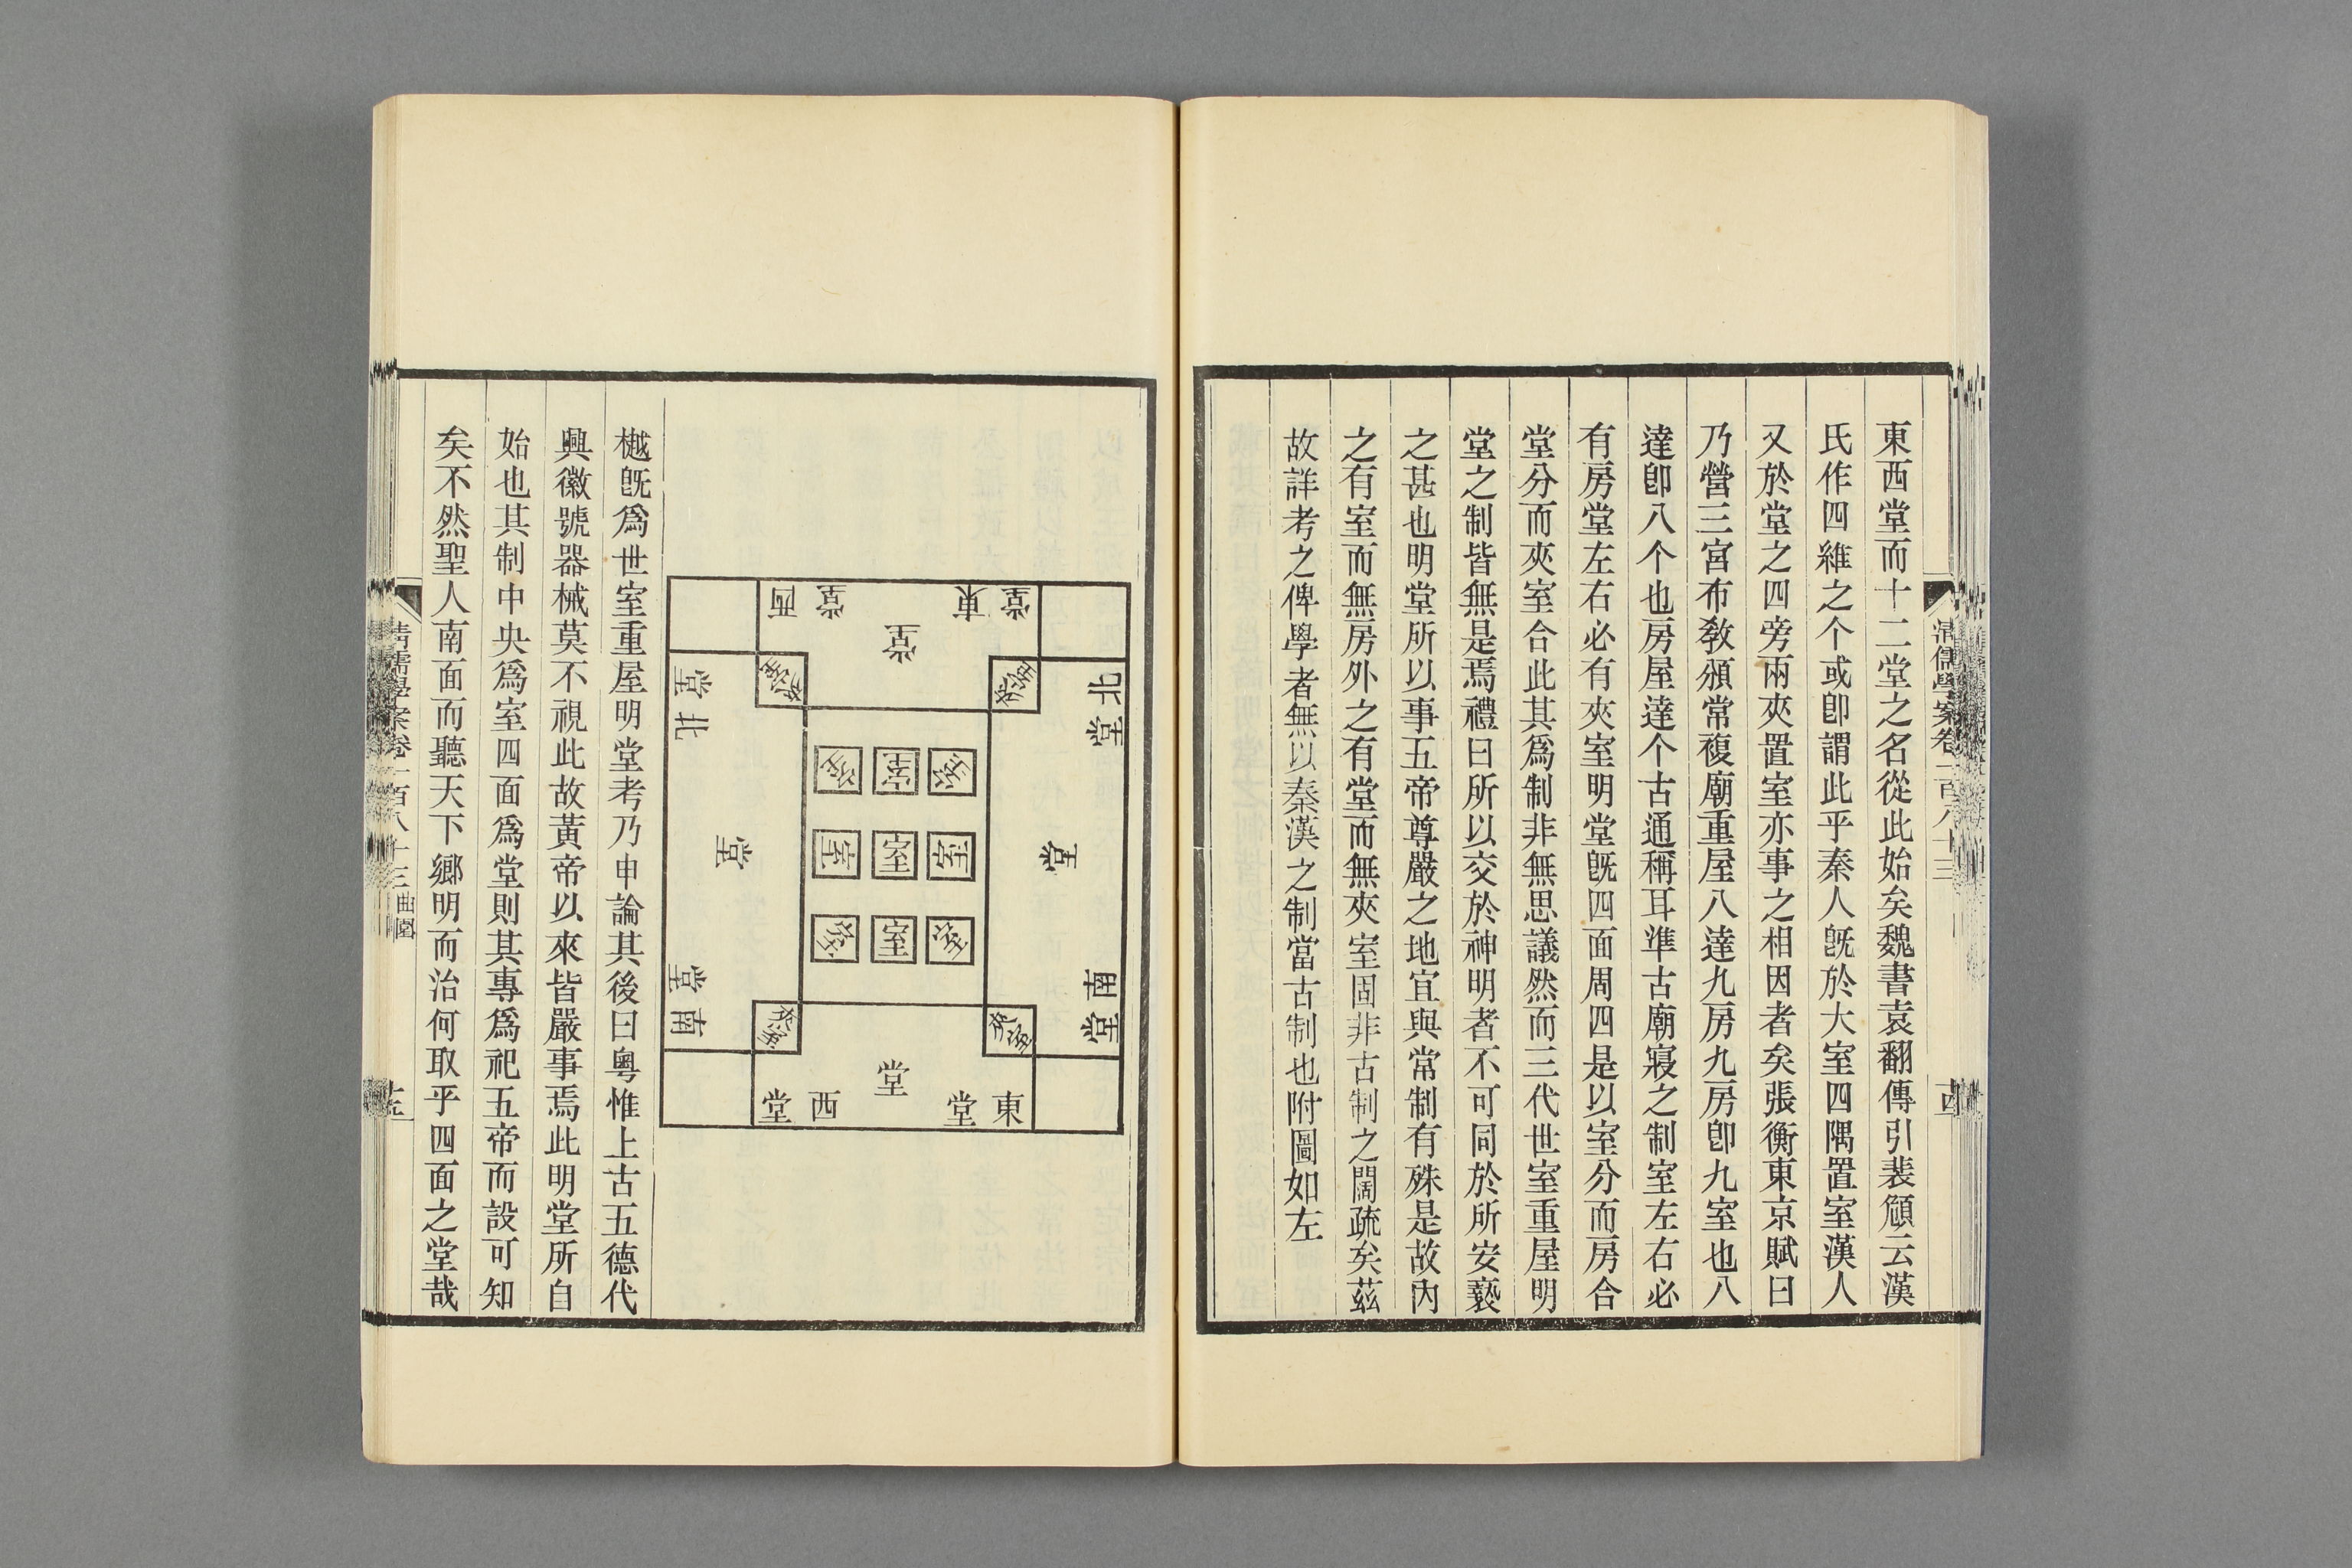 東西堂而十二堂之名從此始矣魏書袁翻傳引裴頠云漢
氏作四維之个或卽謂此乎秦人旣於大室四隅置室漢人
又於堂之四旁兩夾置室亦事之相因者矣張衡東京賦曰
乃營三宮布敎頒常複廟重屋八達九房九房卽九室也八
達卽八个也房屋達个古通稱耳準古廟寢之制室左右必
有房堂左右必有夾室明堂旣四面周四是以室分而房合
堂分而夾室合此其爲制非無思議然而三代世室重屋明
堂之制皆無是焉禮曰所以交於神明者不可同於所安褻
之甚也明堂所以事五帝尊嚴之地宜與常制有殊是故內
之有室而無房外之有堂而無夾室固非古制之闊疏矣茲
故詳考之俾學者無以秦漢之制當古制也附圖如左
清儒學案卷一百八十三
古
北堂
堂
南堂
東堂
堂
西堂
夾室
夾室
室
室
室
室
室
室
室
室
室
夾室
夾室
東堂
堂
西堂
北堂
堂
南堂
樾旣爲世室重屋明堂考乃申論其後曰粵惟上古五德代
興徽號器械莫不視此故黃帝以來皆嚴事焉此明堂所自
始也其制中央爲室四面爲堂則其專爲祀五帝而設可知
矣不然聖人南面而聽天下鄉明而治何取乎四面之堂哉
清儒學案卷一百八十三 曲園